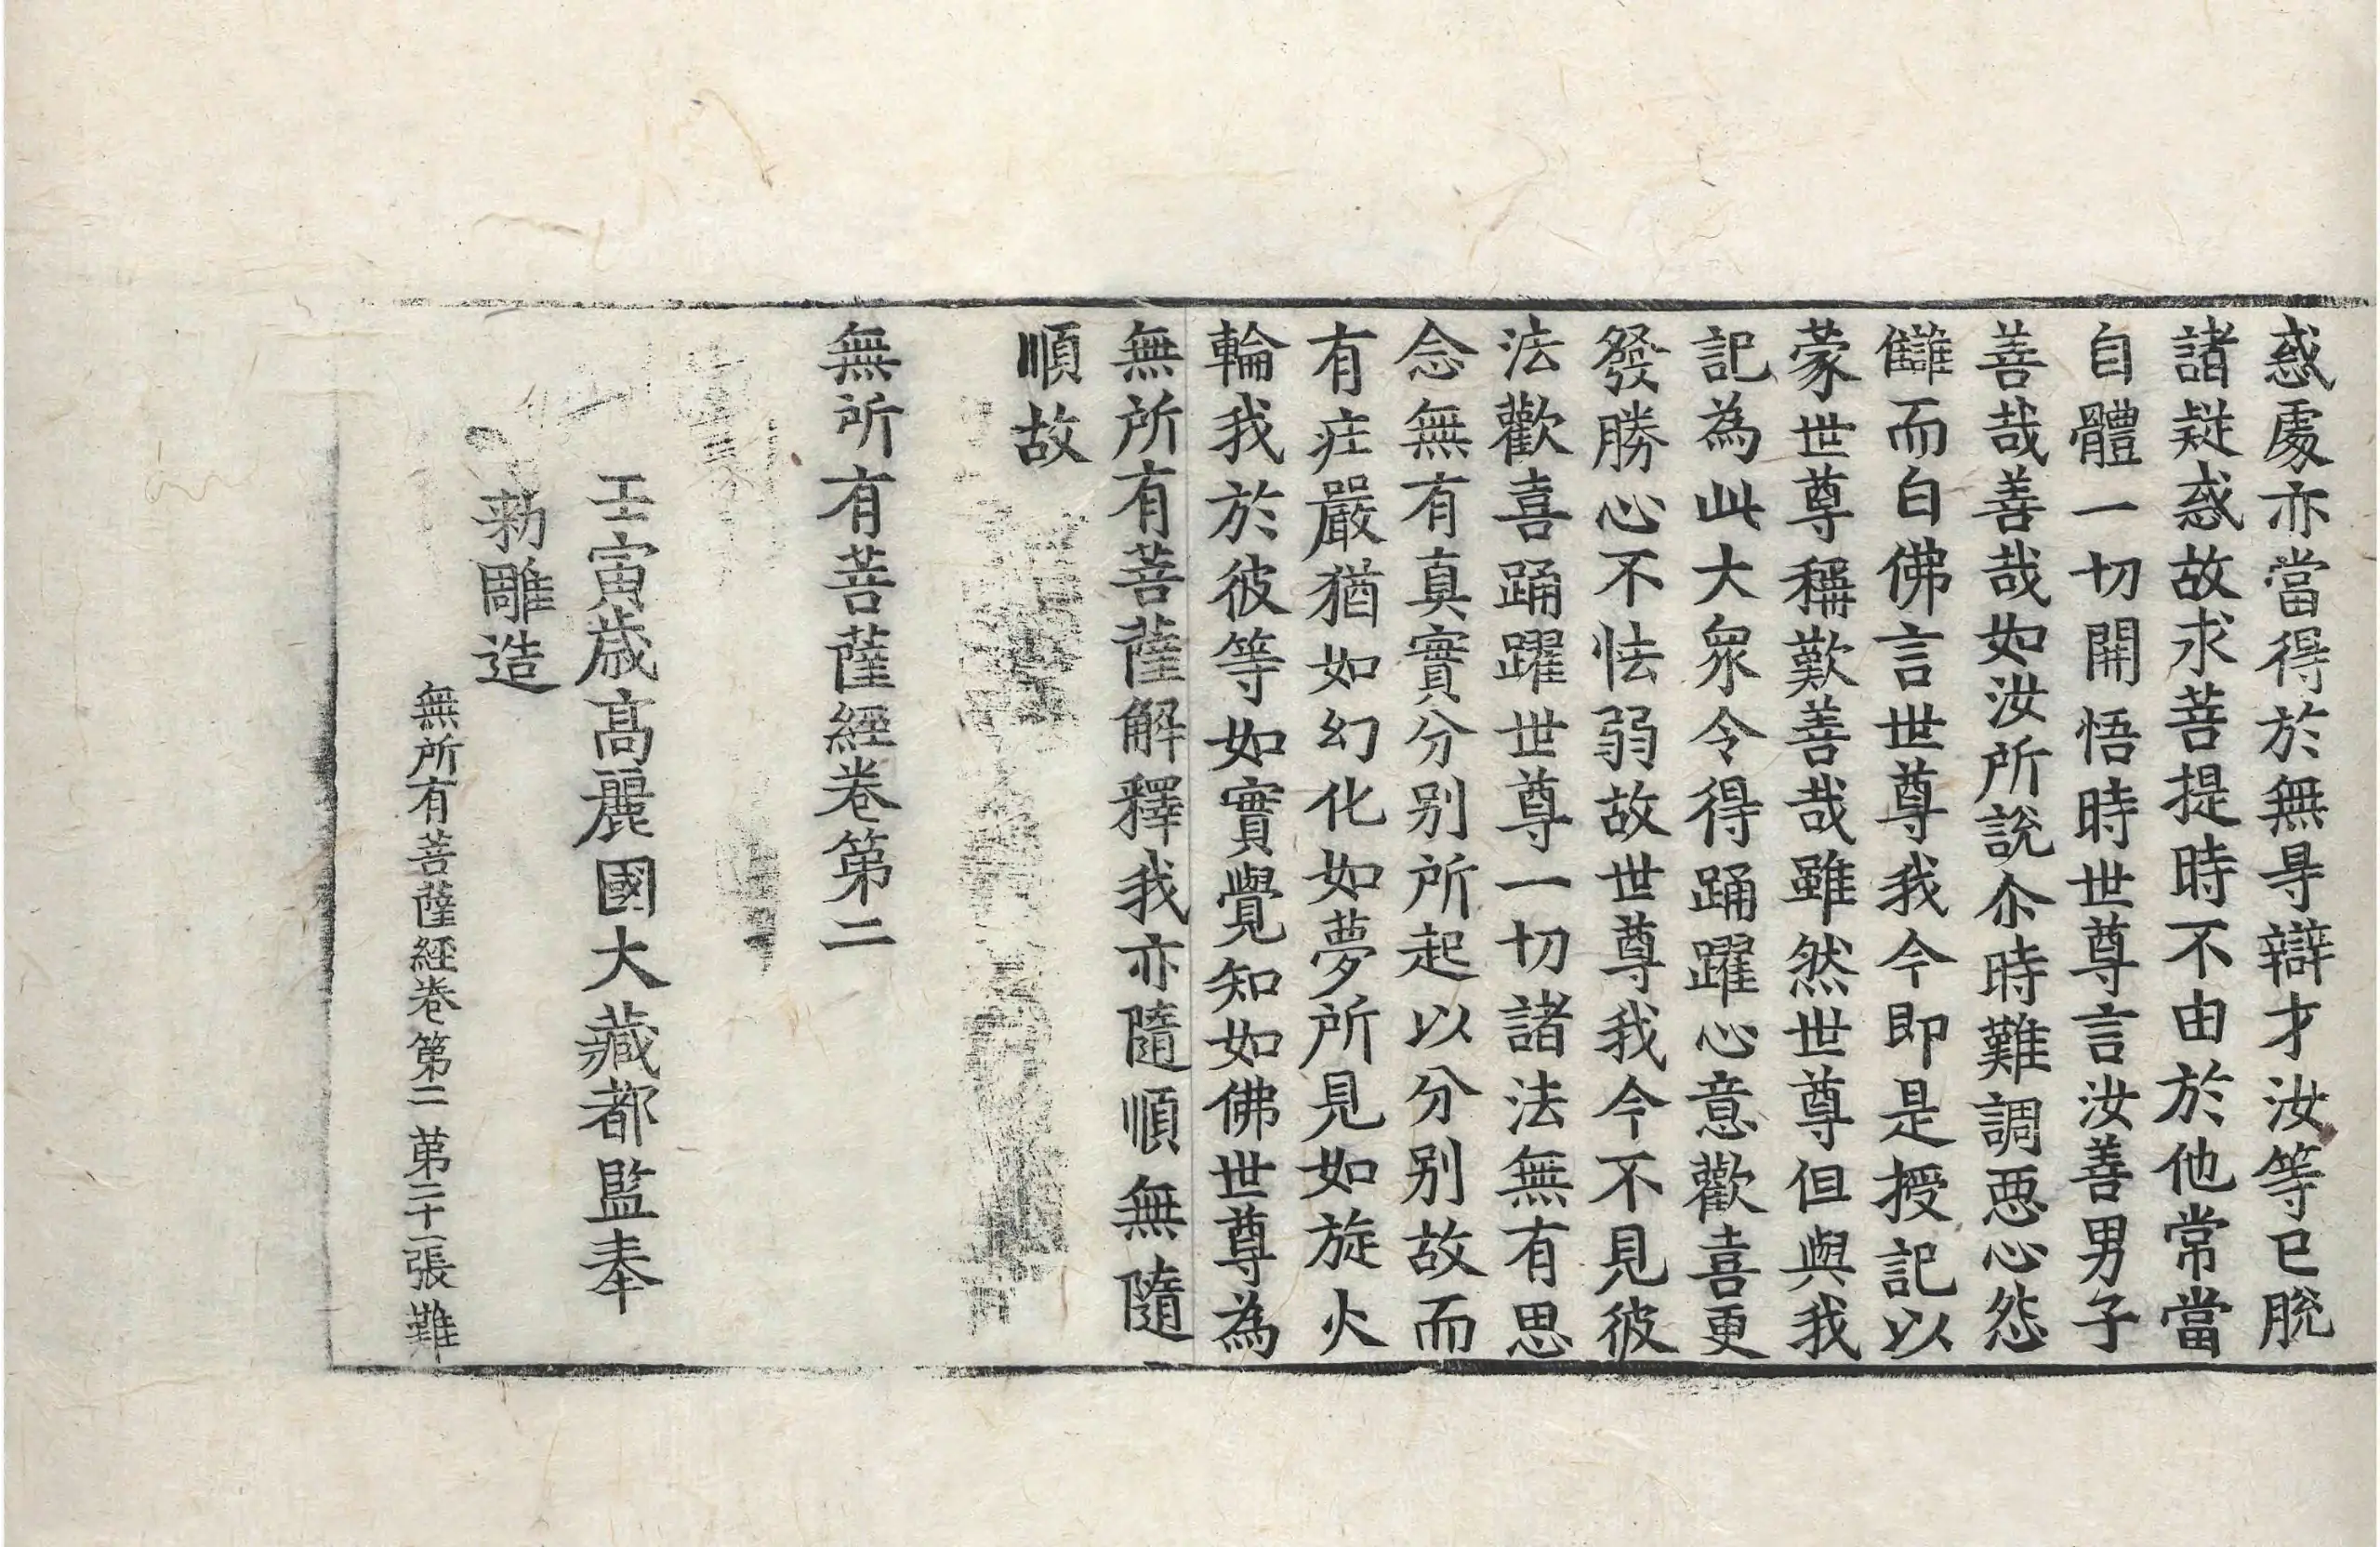 惑處亦當得於無㝵辯才汝等已脫
諸疑惑故求菩提時不由於他常當
自體一切開悟時世尊言汝善男子
善哉善哉如汝所說尒時難調惡心怨
讎而白佛言世尊我今即是授記以
蒙世尊稱歎善哉雖然世尊但與我
記為此大衆令得踊躍心意歡喜更
發勝心不怯弱故世尊我今不見彼
法歡喜踊躍世尊一切諸法無有思
念無有真實分别所起以分别故而
有疘嚴猶如幻化如夢所見如旋火
輪我於彼等如實覺知如佛世尊為
無所有菩薩解釋我亦隨順無隨
順故
無所有菩薩經卷第二
壬寅歲高麗國大藏都監奉
勑雕造
無所有菩薩經卷第二 第二十一張 難